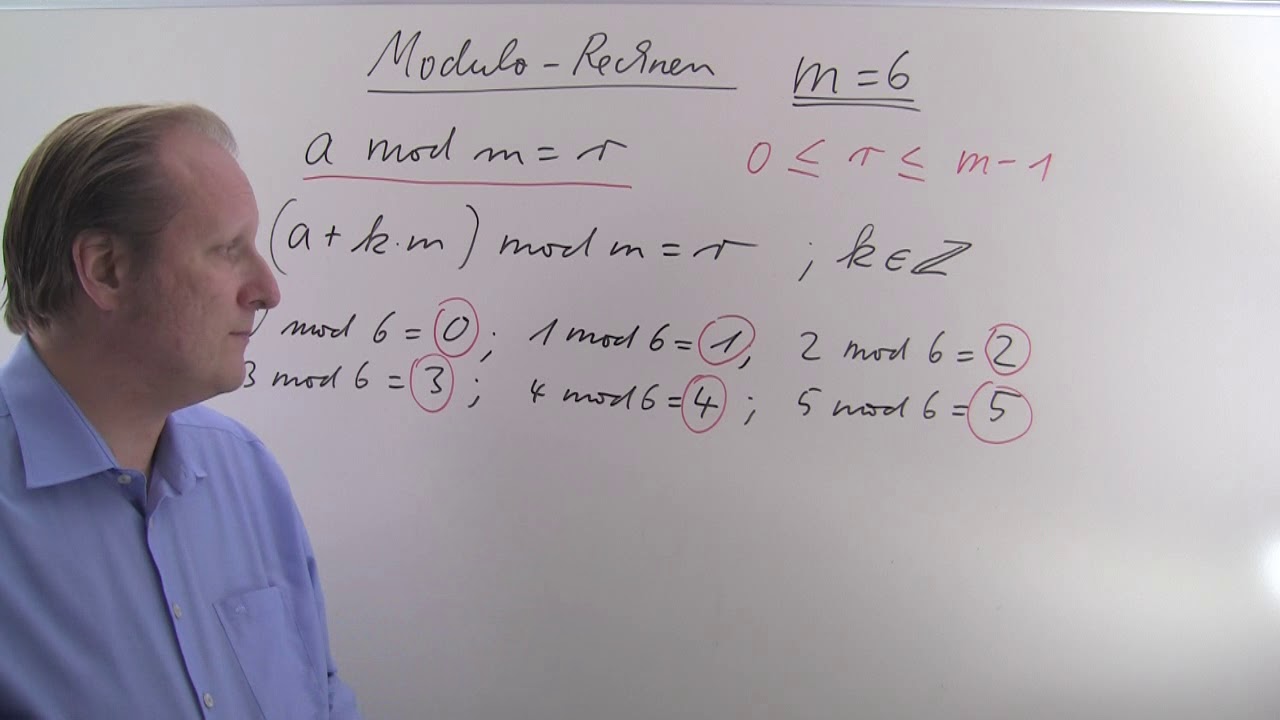 Modulo-Rechnen m=6
a mod m = r 0 ≤ r ≤ m-1
(a + k·m) mod m = r ; k∈ℤ
mod 6 = 0 ; 1 mod 6 = 1, 2 mod 6 = 2
3 mod 6 = 3 ; 4 mod 6 = 4 ; 5 mod 6 = 5